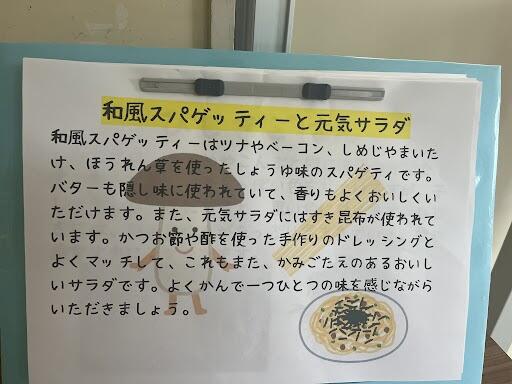 和風スパゲッティーと元気サラダ
和風スパゲッティーはツナやベーコン、しめじやまいた
け、ほうれん草を使ったしょうゆ味のスパゲティです。
バターも隠し味に使われていて、香りもよくおいしくい
ただけます。また、元気サラダにはすき昆布が使われて
います。かつお節や酢を使った手作りのドレッシングと
よくマッチして、これもまた、かみごたえのあるおいし
いサラダです。よくかんで一つひとつの味を感じながら
いただきましょう。